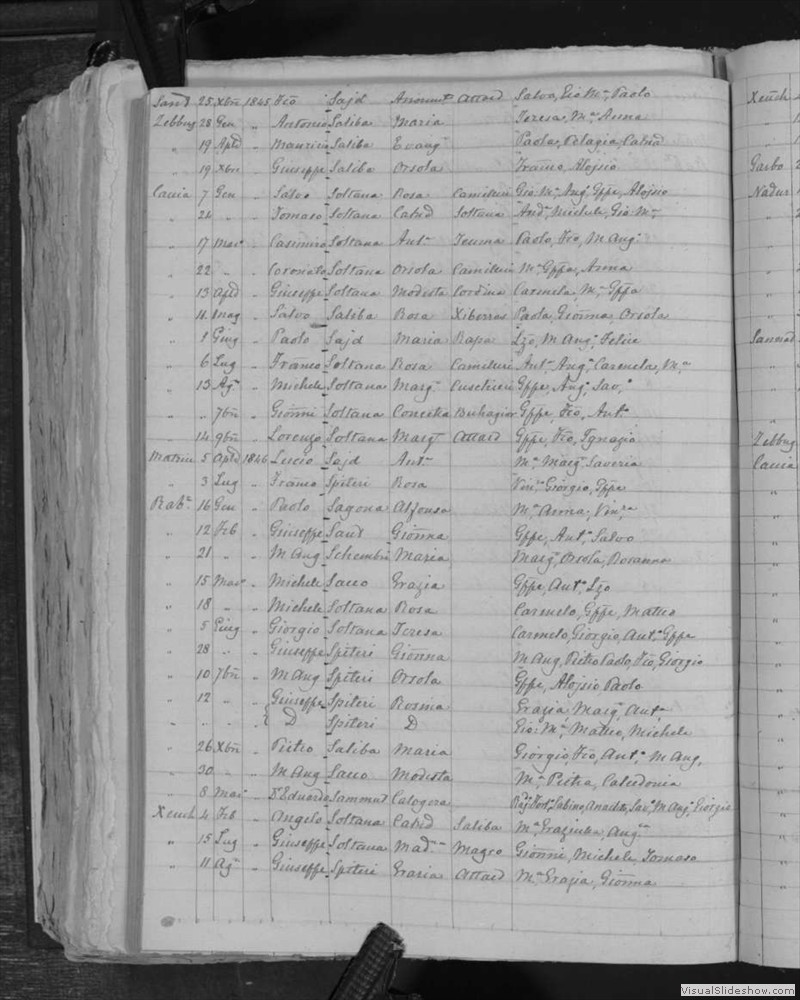 Sand 25 Xbre 1845 Fco Sajd Anount Attard Salva, Gio Ma, Paolo
Zebbug 28 Gen " Antonio Saliba Maria Teresa, Ma Anna
" 19 Aple " Maurizio Saliba Evang Paola, Pelagia, Catnd
" 19 Xbre " Giuseppe Saliba Orsola Franco, Alojsio
Caccia 7 Gen " Salvo Soltana Rosa Camilleri Gio Ma, Ang, Gppe, Alojsio
" 24 " " Tomaso Soltana Catnd Soltana Anda, Michele, Gio Ma
" 17 Mar " Casimiro Soltana Anta Teuma Paolo, Fco, M Ang
" 22 " " Coronato Soltana Orsola Camilleri Ma Gppa, Anna
" 13 Aple " Giuseppe Soltana Modesta Cordina Carmela, Ma Gppa
" 11 Mag " Salvo Saliba Rosa Xiberras Paola, Gionna, Orsola
" 1 Giug " Paolo Sajd Maria Rapa Lzo, M Ang, Felice
" 6 Lug " Franco Soltana Rosa Camilleri Anta Anga, Carmela, Ma
" 13 Ago " Michele Soltana Marg Gppe, Ang, Sava
" " 7bre " Gionni Soltana Concetta Buhagiar Gppe, Fco, Anto
14 9bre " Lorenzo Soltana Marg Attard Gppe, Fco, Ignazia
5 Aple 1846 Lucio Sajd Anta Ma Marg, Saveria
" 3 Lug " Franco Spiteri Rosa Vinc Giorgio, Gppe
Rabo 16 Gen " Paolo Sagona Alfonsa Ma Anna, Vinca
" 12 Feb " Giuseppe Saut Gionna Gppe, Anta, Salvo
" 21 " " M Ang Schembri Maria Marg, Orsola, Rosanna
" 15 Mar " Michele Sacco Grazia Gppe, Anto, Lzo
" 18 " " Michele Soltana Rosa Carmelo, Gppe, Matteo
" 5 Giug " Giorgio Soltana Teresa Carmelo, Giorgio, Anto, Gppe
" 28 " " Giuseppe Spiteri Gionna M Ang, Pietro Paolo, Fco, Giorgio
" 10 7bre " M Ang Spiteri Orsola Gppe, Alojsio Paolo
" 12 " " Giuseppe Spiteri Rosina Grazia Marg, Anta
" " " { D Spiteri D Gio: Ma, Matteo, Michele
" 26 Xbre " Pietro Saliba Maria Giorgio, Fco, Anto, M Ang,
" 30 " " M Ang Sacco Modesta Ma Pietra, Calcedonia
" 8 Mar " Dr Eduardo Sammut Calogera Sabina, Sava, M Ang, Giorgio
Xeuch 4 Feb " Angelo Soltana Catnd Saliba Ma Graziulla, Ang
" 15 Lug " Giuseppe Soltana Madna Magro Gionni, Michele, Tomaso
" 11 Ago " Giuseppe Spiteri Grazia Attard Ma Grazia, Gionna
Xeuch
Garbo
Nadur
Sannat
Zebbug
Caccia
VisualSlideshow.com